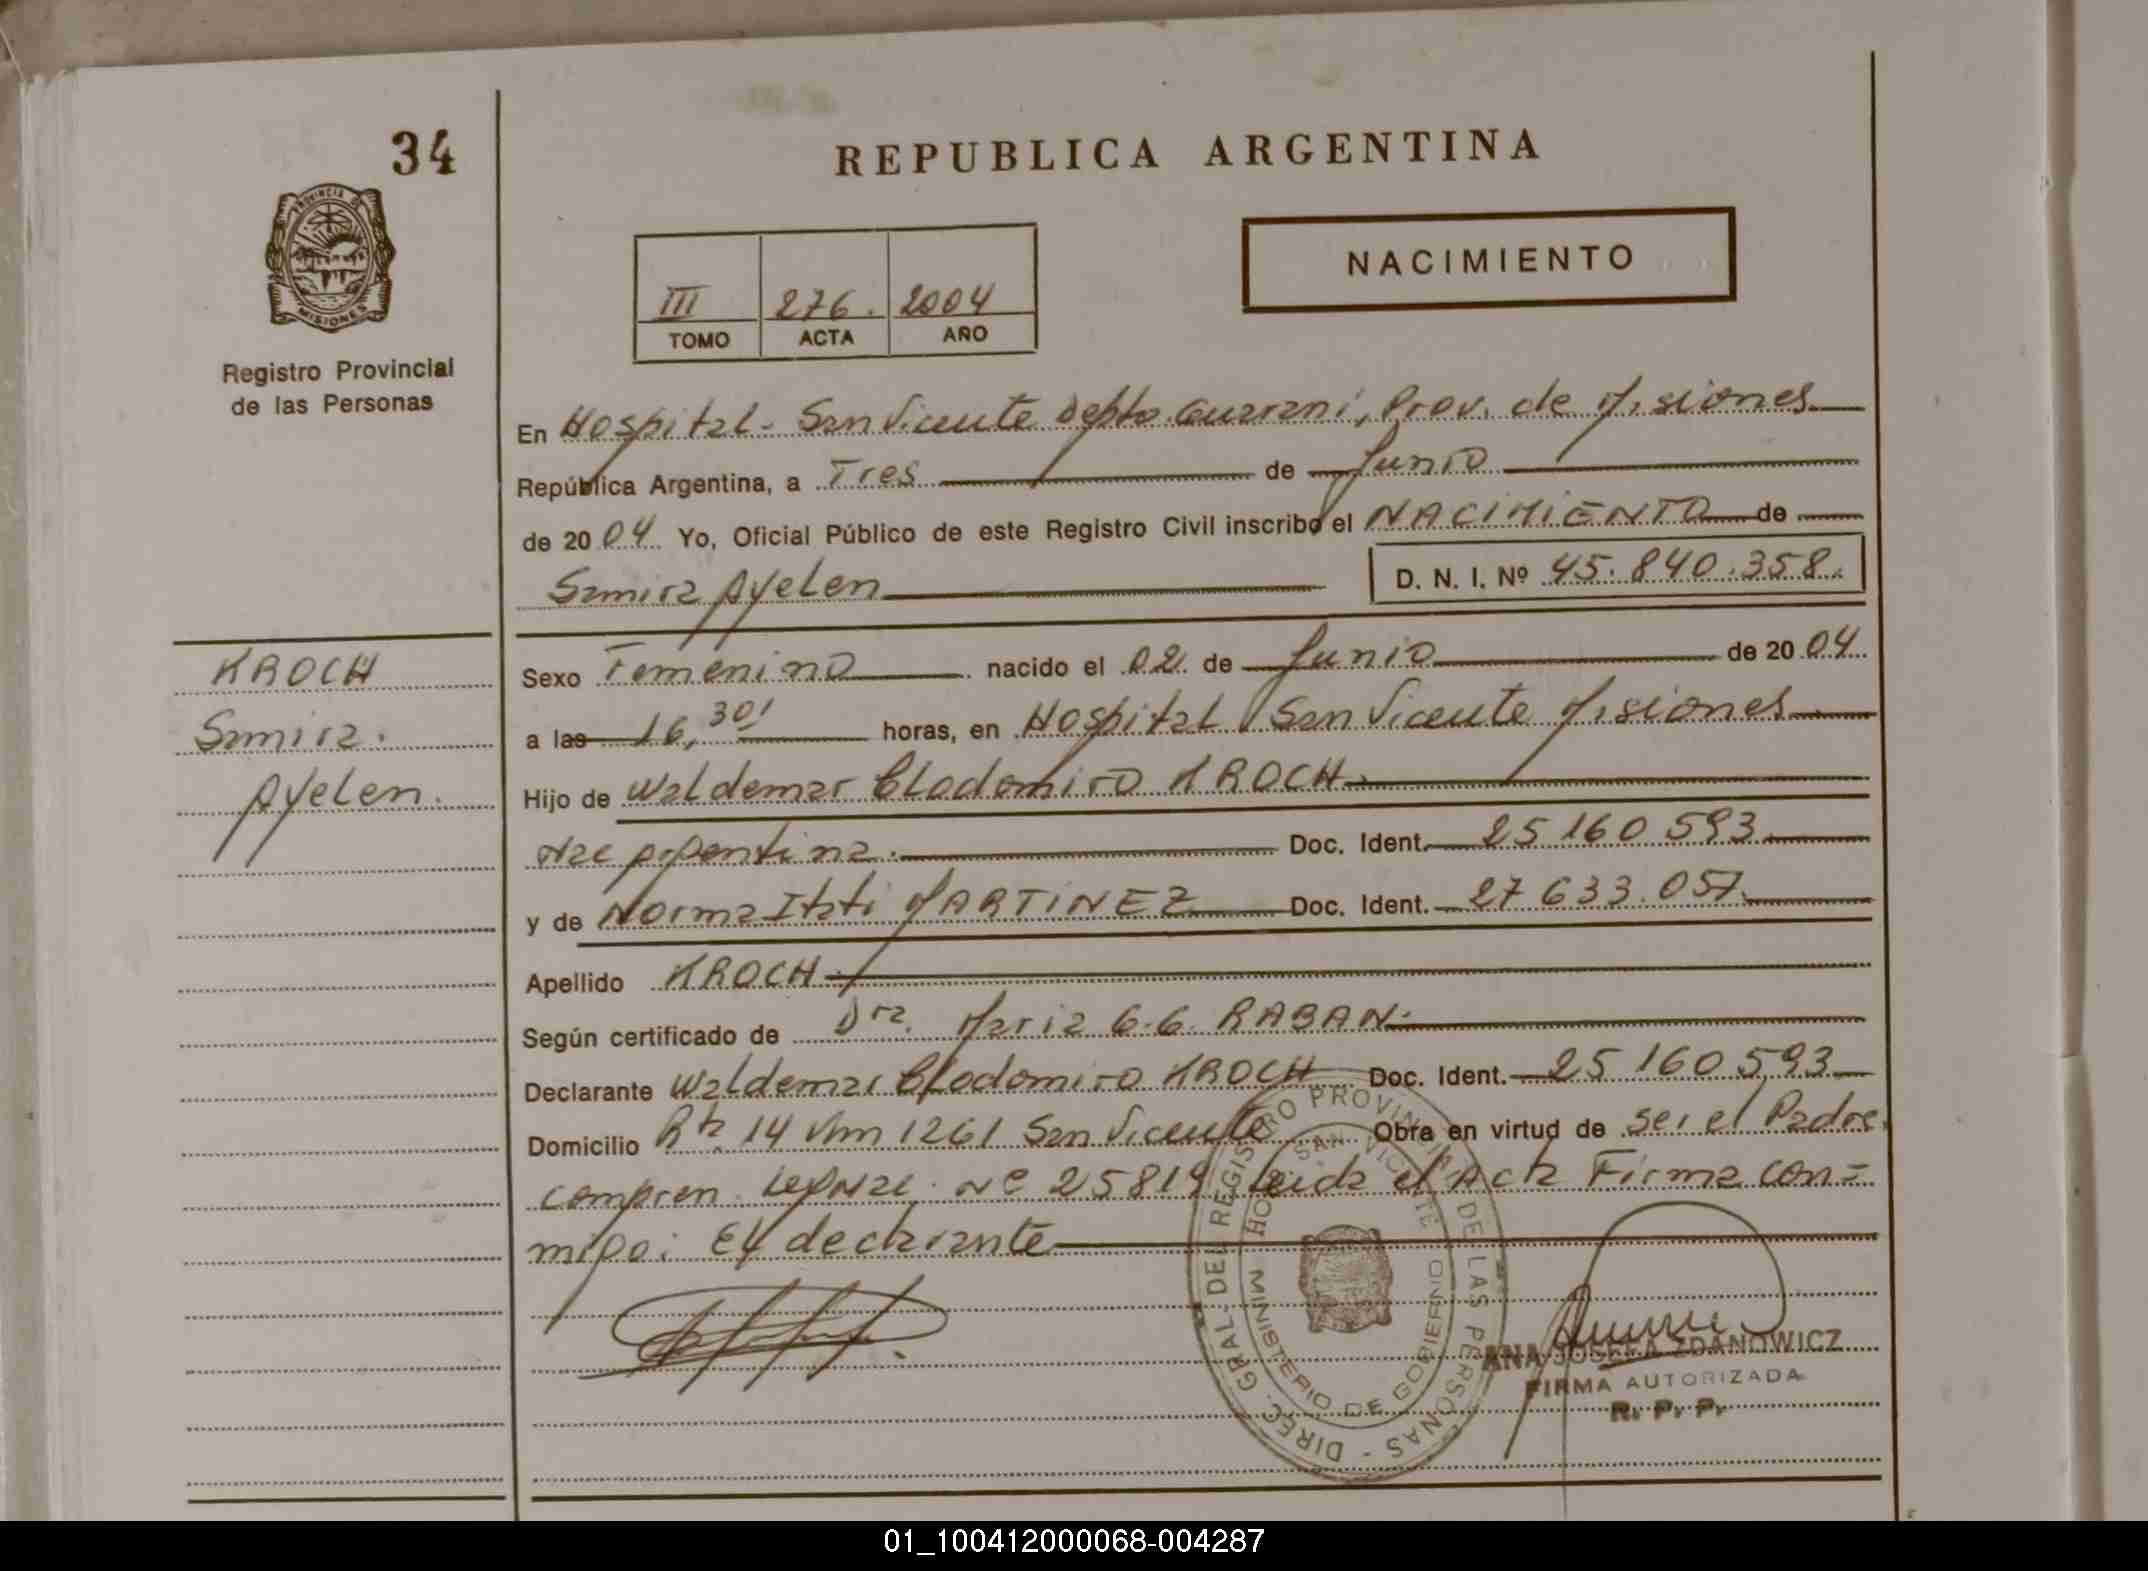 34
REPUBLICA ARGENTINA
PROVINCIA DE
MISIONES
Registro Provincial
de las Personas
III 276. 2004
TOMO ACTA AÑO
NACIMIENTO
En Hospital - San Vicente Depto. Guarani, Prov. de Misiones
República Argentina, a Tres de Junio
de 2004 Yo, Oficial Público de este Registro Civil inscribo el NACIMIENTO de
Samira Ayelen D. N. I. Nº 45.840.358.
KROCH
Samira.
Ayelen.
Sexo Femenino nacido el 02 de Junio de 2004
a las 16,30' horas, en Hospital San Vicente Misiones
Hijo de Waldemar Clodomiro KROCH
Nac Argentina. Doc. Ident. 25160.593
y de Norma Itati MARTINEZ Doc. Ident. 27 633.057
Apellido KROCH
Según certificado de Dra. Maria G. G. RABAN.
Declarante Waldemar Clodomiro KROCH Doc. Ident. 25 160 593
Domicilio Rta 14 Km 1261 San Vicente Obra en virtud de ser el Padre
compren. Nº 25819 Leida el Acta Firma con=
migo: El declarante
DIREC. GRAL. DEL REGISTRO PROVINCIAL DE LAS PERSONAS -
SAN VICENTE
MINISTERIO DE GOBIERNO
ANA JOSEFA ZDANOWICZ
FIRMA AUTORIZADA
R. P. P.
01_100412000068-004287